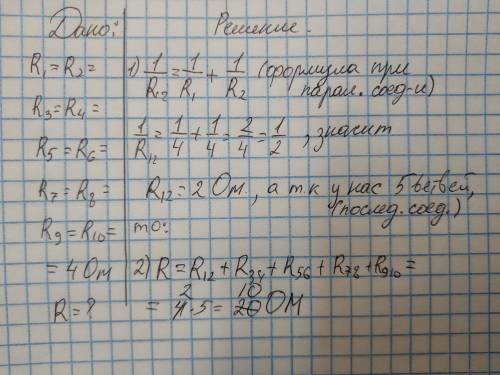 Дано:
R₁=R₂=
R₃=R₄=
R₅=R₆=
R₇=R₈=
R₉=R₁₀=
=4 Ом
R=?
Решение.
1) 1/R₁₂ = 1/R₁ + 1/R₂ (формула при
парал. соед-и)
1/R₁₂ = 1/4 + 1/4 = 2/4 = 1/2, значит
R₁₂ = 2 Ом, а т.к у нас 5 ветвей,
(послед. соед.)
то:
2) R = R₁₂ + R₃₄ + R₅₆ + R₇₈ + R₉₁₀ =
2 10
= 4·5 = 20 ОМ